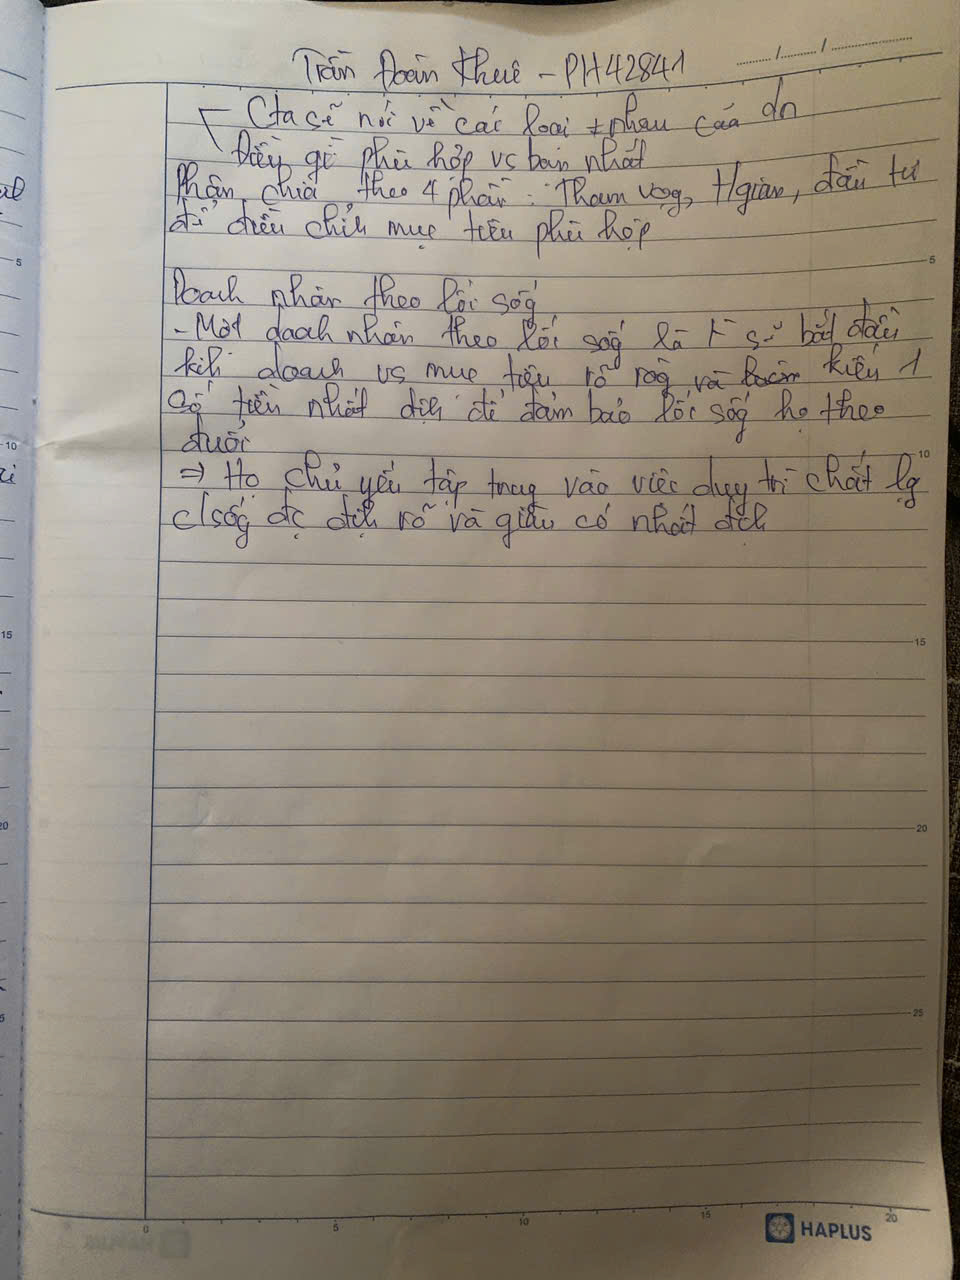 Trần Đoàn Thuê - PH42841
Cta sẽ nói về các loại ≠ nhau của dn
Điều gì phù hợp vs bạn nhất
Phân chia theo 4 phần: Tham vog, t/gian, đầu tư
để điều chỉh mục tiêu phù hợp
Doah nhân theo lối sốg
- Một doah nhân theo lối sốg là sẽ bắt đầu
kih doanh vs mục tiêu rõ ràg và kiếm 1
số tiền nhất địh để đảm bảo lối sốg họ theo
đuổi
⇒ Họ chủ yếu tập trug vào việc duy trì chất lg
c/sốg đc địh rõ và giàu có nhất địh
5
10
15
20
25
0 5 10 15 20
HAPLUS